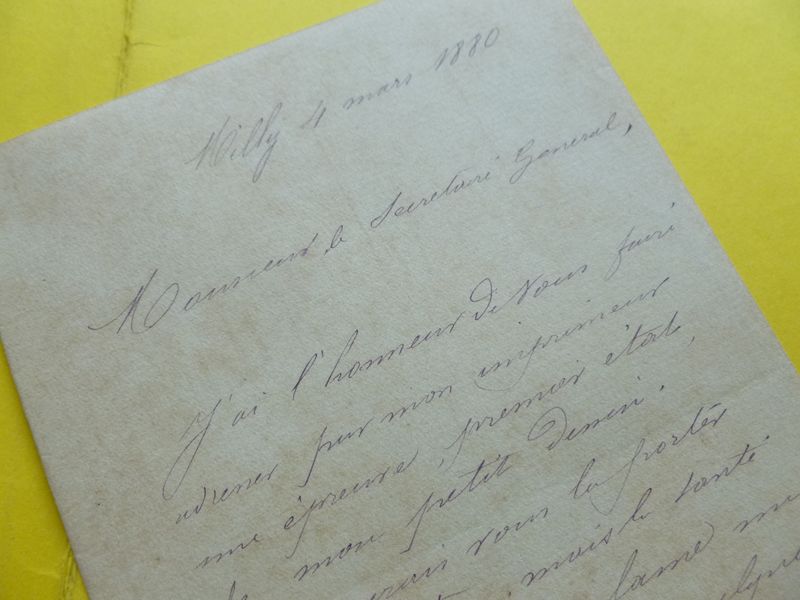 Milly 4 mars 1880
Monsieur le Secretaire General,
J'ai l'honneur de vous faire
adresser par mon imprimeur
une épreuve, premier état,
de mon petit dessin.
vous la porter
mais la santé
fame